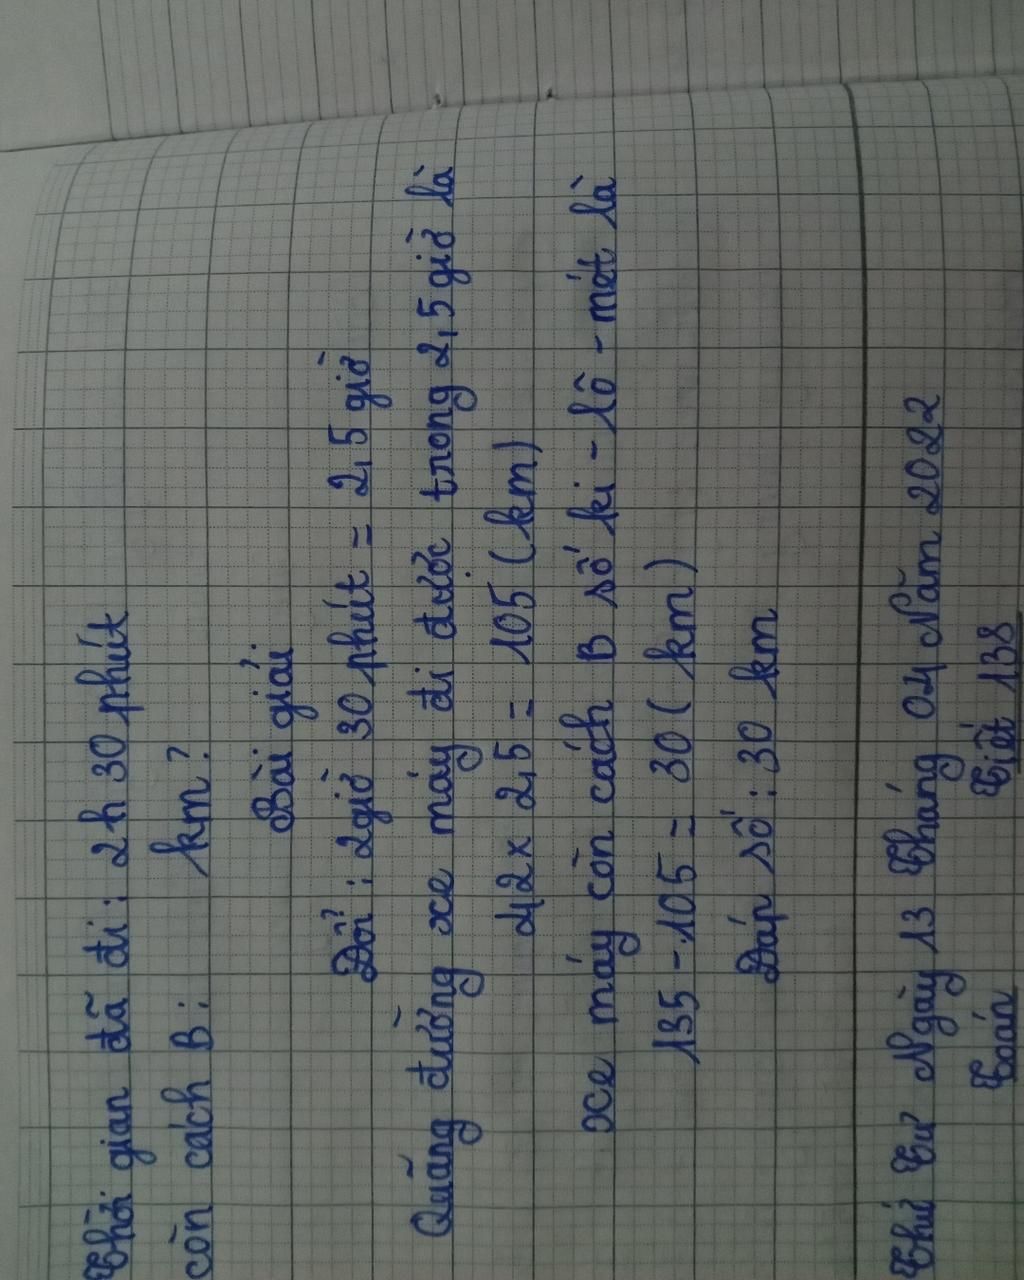 Thời gian đã đi : 2 h 30 phút
còn cách B : km ?
Bài giải
Đổi : 2 giờ 30 phút = 2,5 giờ
Quãng đường xe máy đi được trong 2,5 giờ là
42 x 2,5 = 105 (km)
xe máy còn cách B số ki - lô - mét là
135 - 105 = 30 ( km )
Đáp số : 30 km
Thứ Tư Ngày 13 Tháng 04 Năm 2022
Toán Tiết 138